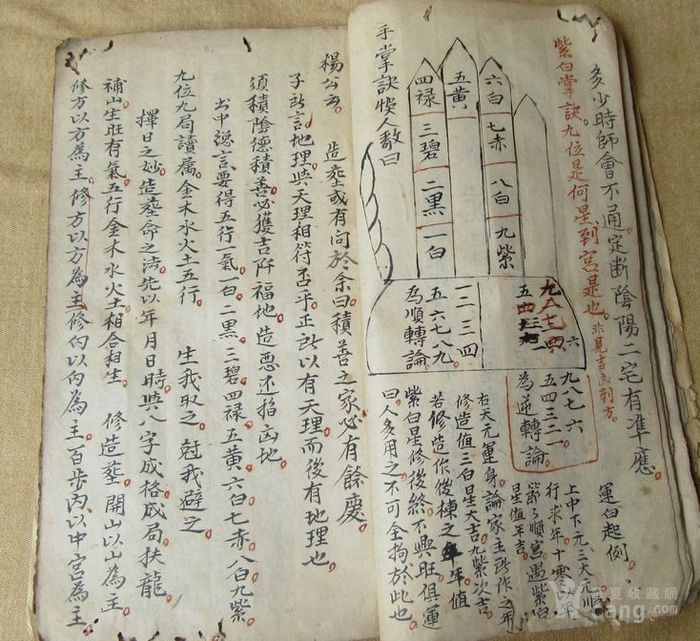 多少時師會不通定斷陰陽二宅有準應
紫白掌訣九位是何星到宮是也
非見吉凶到方
六白
七赤
八白
九紫
五黃
四禄
三碧
二黑
一白
手掌訣
人教曰
一二三四
五六七八九
為順轉論
九八七六
五四三二一
為逆轉論
運白起例
上中下元三大元順
行求年十
順宮遇紫白
星值年吉
右天元運身論家主所作之年
修造值三白星大吉九紫次吉
若修造作後棟之年年值
紫白星修後終不興旺俱運
曰人多用之不可全拘於此也
楊公云
造塟或有向於余曰積善之家必有餘慶
子所言地理與天理相符否乎正所以有天理而後有地理也
須積陰德積善必獲吉阡福地造惡还招凶地
出中總言要得五行一氣一白二黑三碧四禄五黃六白七赤八白九紫
九位九局讀属金木水火土五行
生我取之尅我避之
擇日之妙造塟命之法先以年月日時與八字成格成局扶龍
補山生旺有氣五行金木水火土相合相生
修造塟開山以山為主
修方以方為主修方以方為主修向以向為主百步內以中宮為主